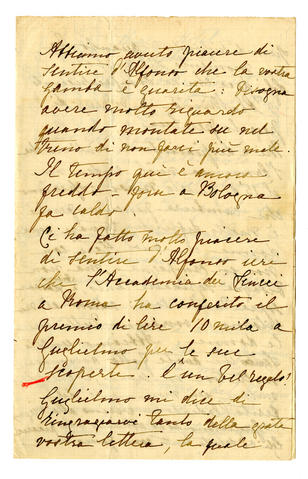 Abbiamo avuto piacere di
sentire d'Alfonso che la vostra
gamba è guarita: bisogna
avere molto riguardo
quando montate su nel
treno di non farvi più male.
Il tempo qui è ancora
freddo - forse a Bologna
fa caldo.
Ci ha fatto molto piacere
di sentire d'Alfonso ieri
che l'Accademia dei Lincei
a Roma ha conferito il
premio di lire 10 mila a
Guglielmo per le sue
scoperte. È un bel regalo!
Guglielmo mi dice di
ringraziarvi tanto della grata
vostra lettera, la quale